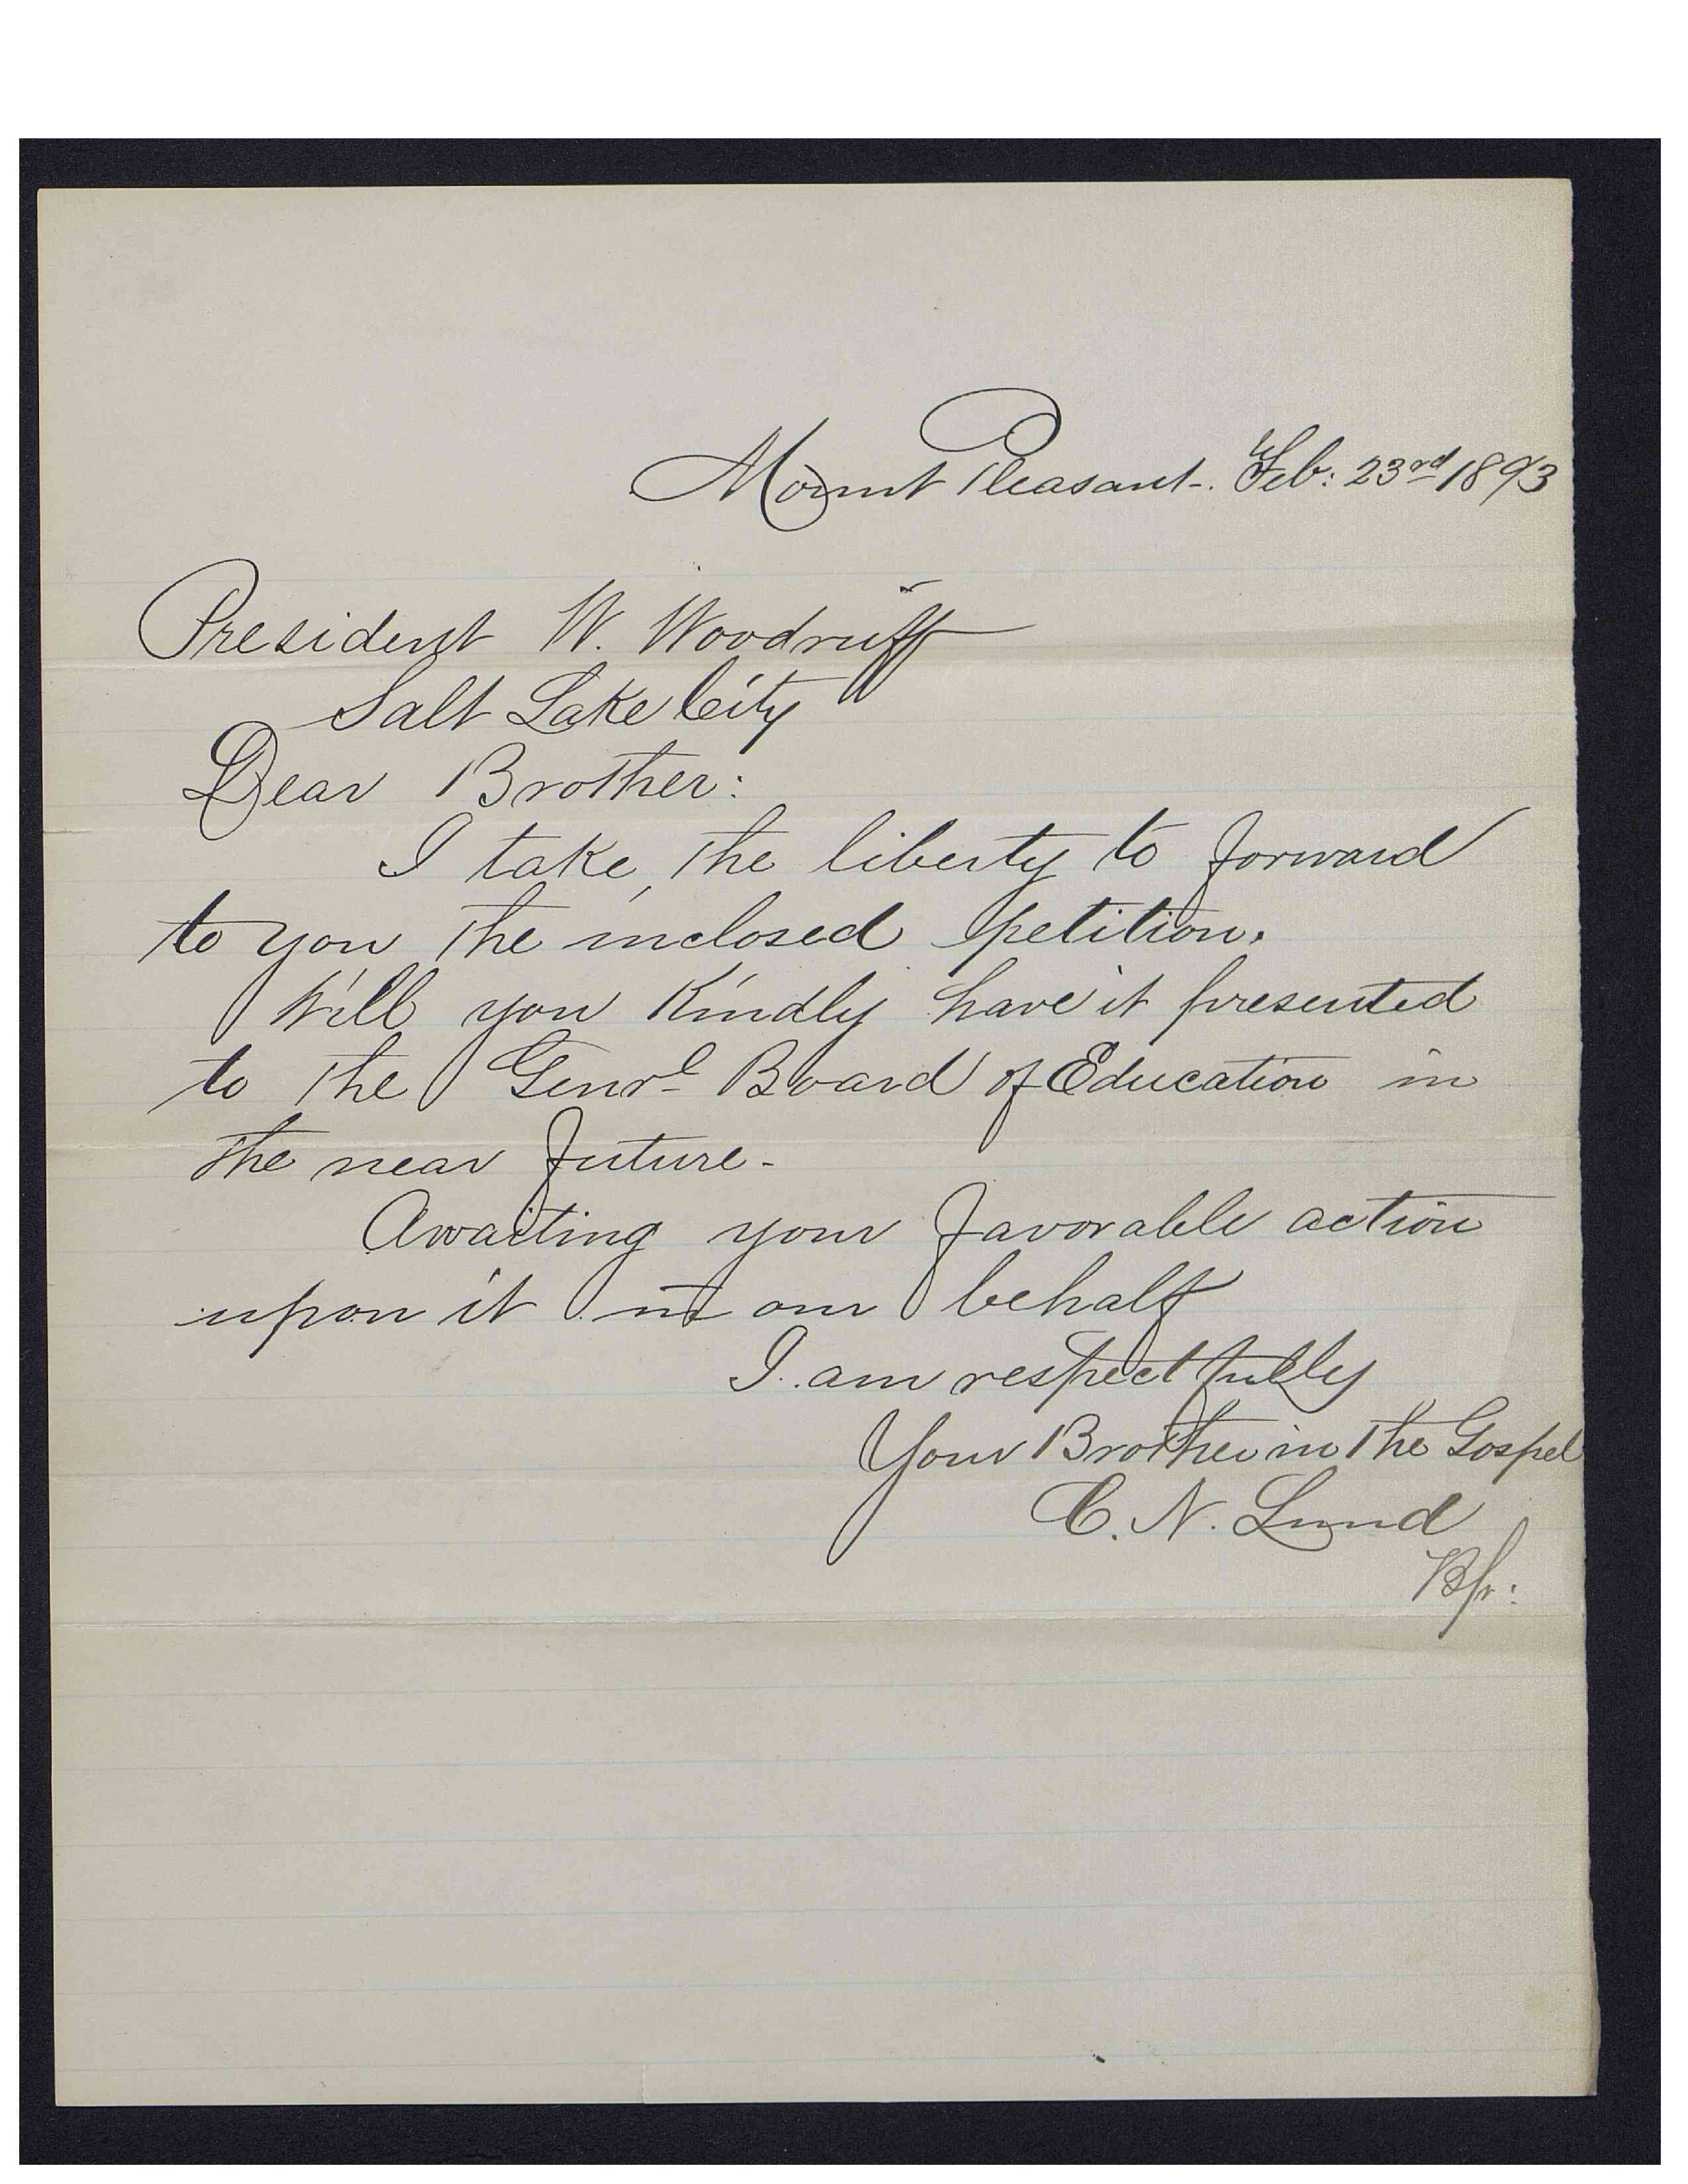 Mount Pleasant. Feb: 23rd 1893
President W. Woodruff
Salt Lake City
Dear Brother:
I take the liberty to forward
to you the inclosed petition.
Will you Kindly have it presented
to the Genrl Board of Education in
the near future-
Awaiting your favorable action
upon it in our behalf
I am respectfully
Your Brother in the Gospel
C. N. Lund
Bp: